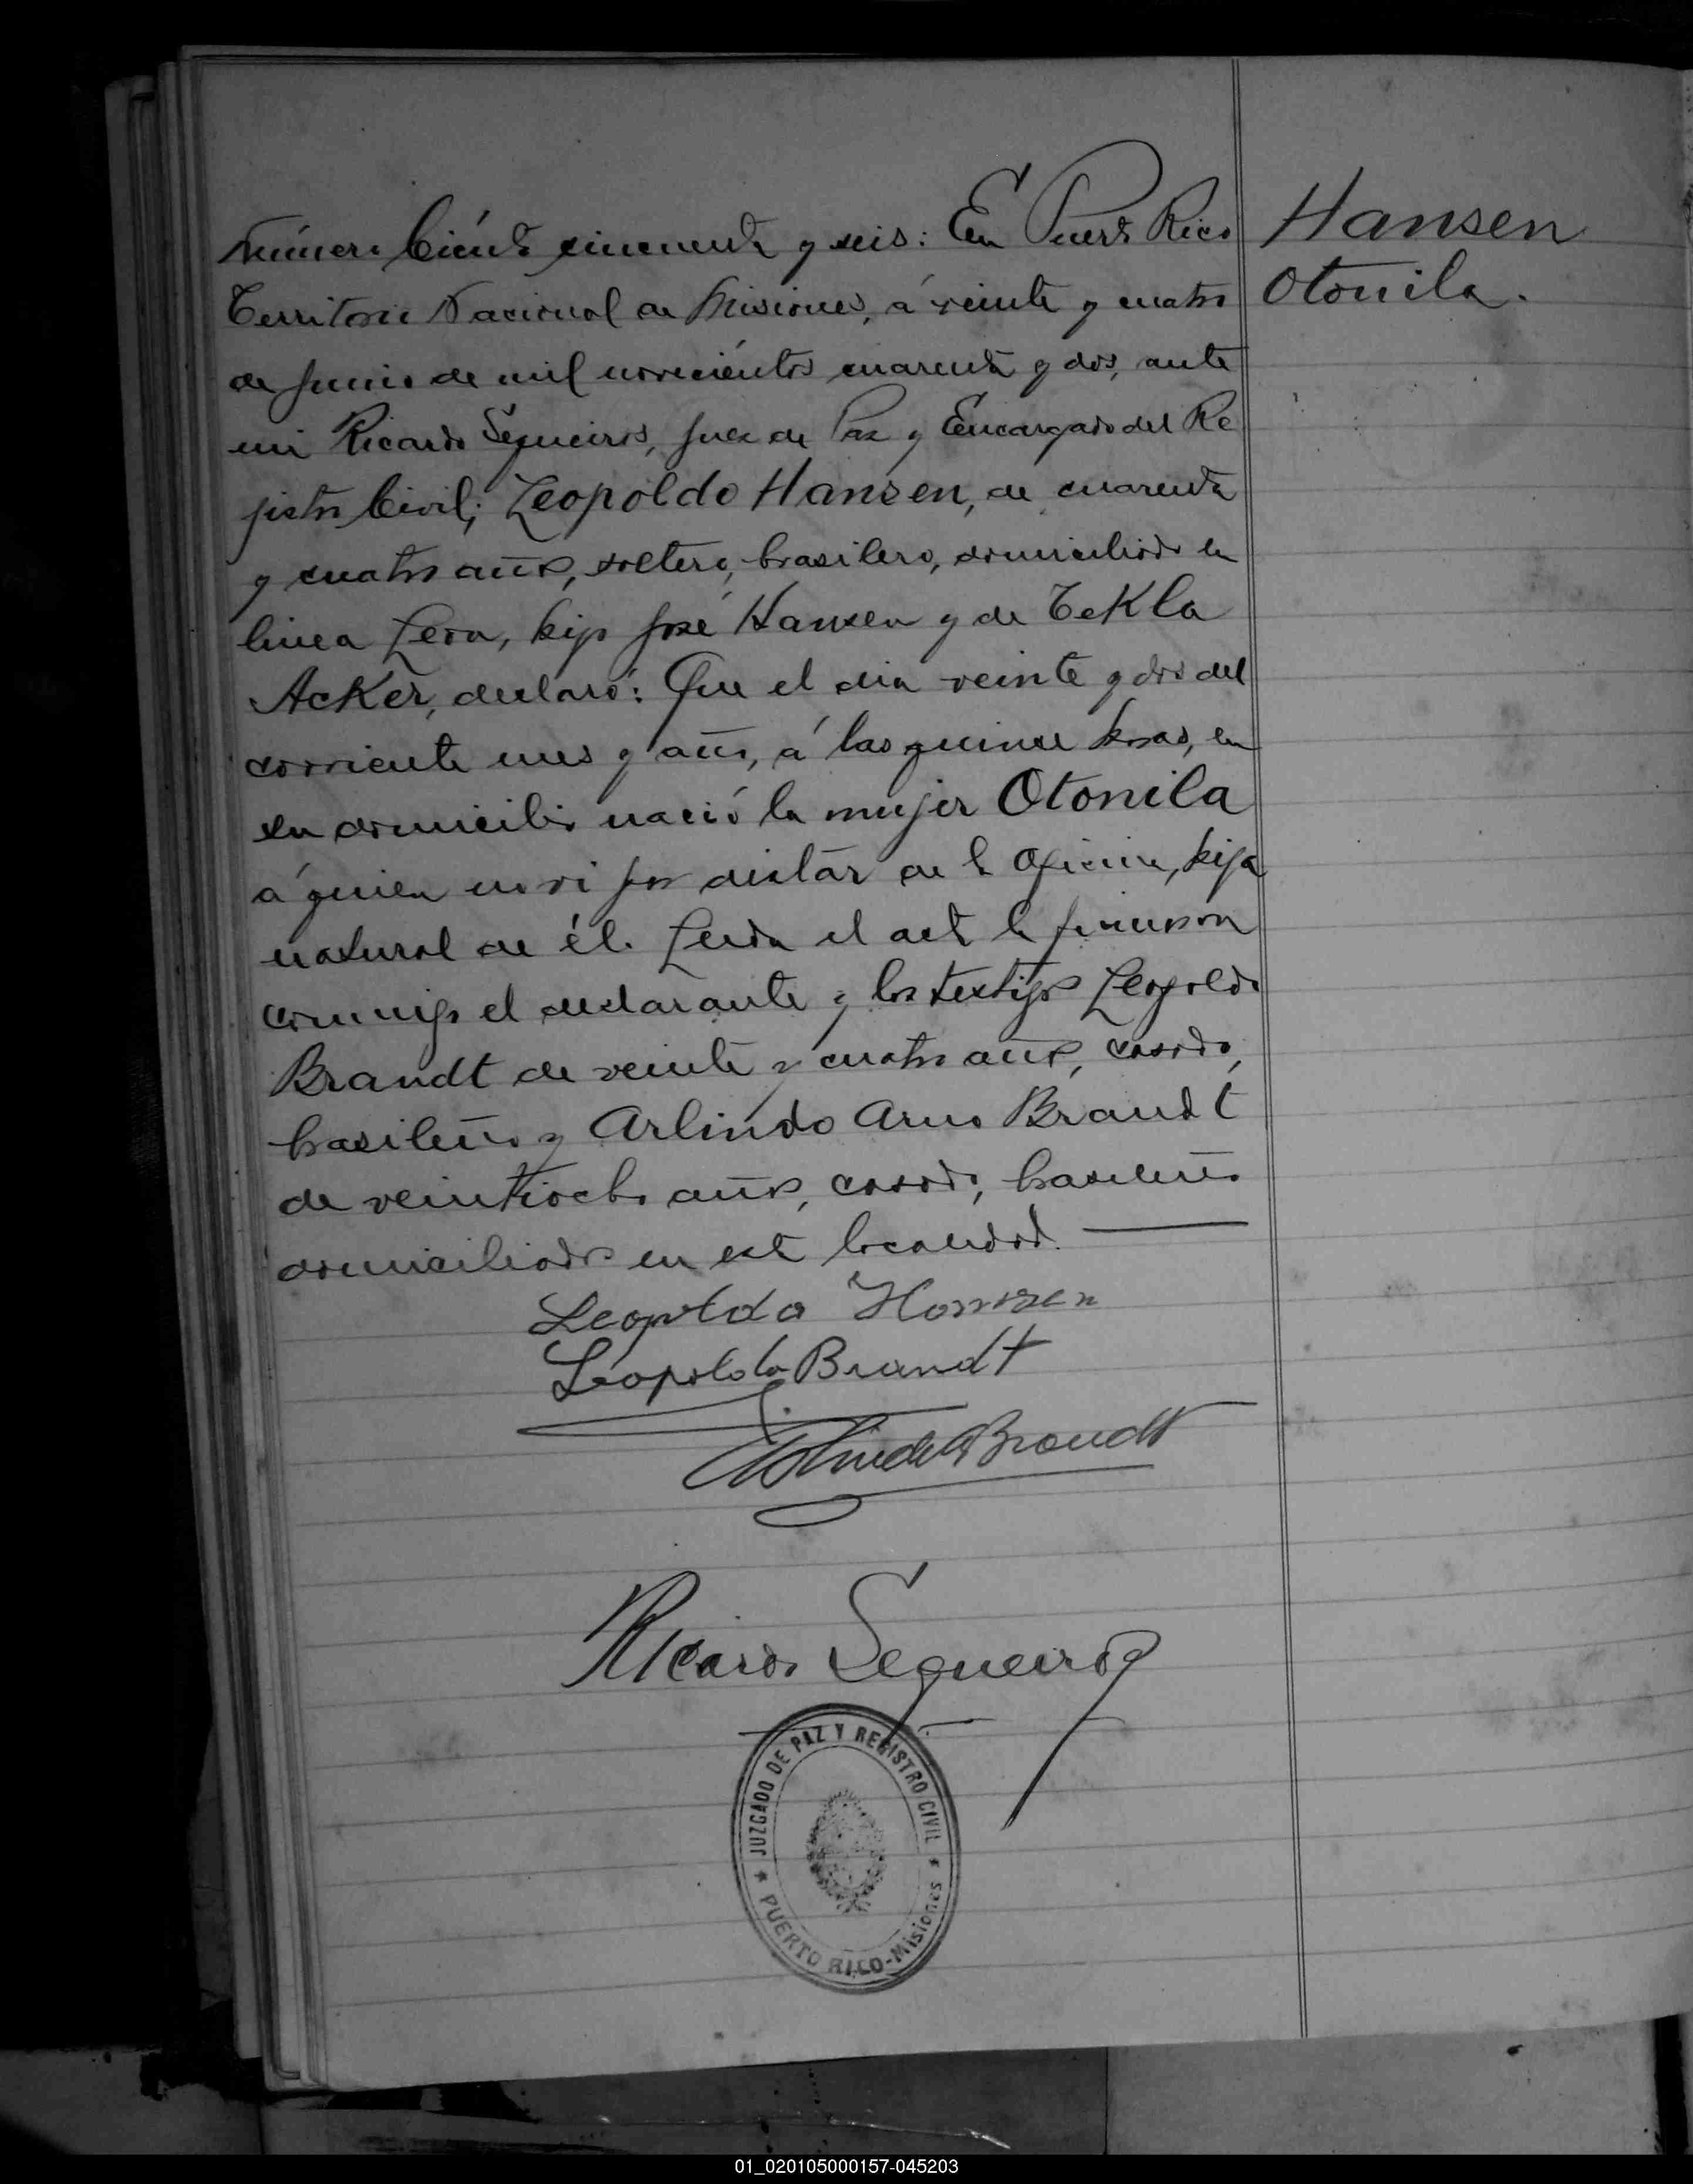 Número Ciento cincuenta y seis: En Puerto Rico
Territorio Nacional de Misiones, á veinte y cuatro
de Junio de mil novecientos cuarenta y dos, ante
mi Ricardo Sequeiros, Juez de Paz y Encargado del Re
jistro Civil; Leopoldo Hansen, de cuarenta
y cuatro años, soltero, brasilero, domiciliado en
linea León, hijo José Hansen y de Tekla
Acker, declaró: Que el dia veinte y dos del
corriente mes y año, á las quince horas, en
su domicilio nació la mujer Otonila
á quien no vi por distar de la Oficina, hija
natural de él. Leida el acta la firmaron
conmigo el declarante y los testigos Leopoldo
Brandt de veinte y cuatro años, casado,
brasileño y Arlindo Arno Brandt
de veintiocho años, casado, brasileño
domiciliados en esta localidad.
Hansen
Otonila.
Leopoldo Hansen
Leopoldo Brandt
Arlindo A Brandt
Ricardo Sequeiros
JUZGADO DE PAZ Y REGISTRO CIVIL
PUERTO RICO-Misiones
01_020105000157-045203